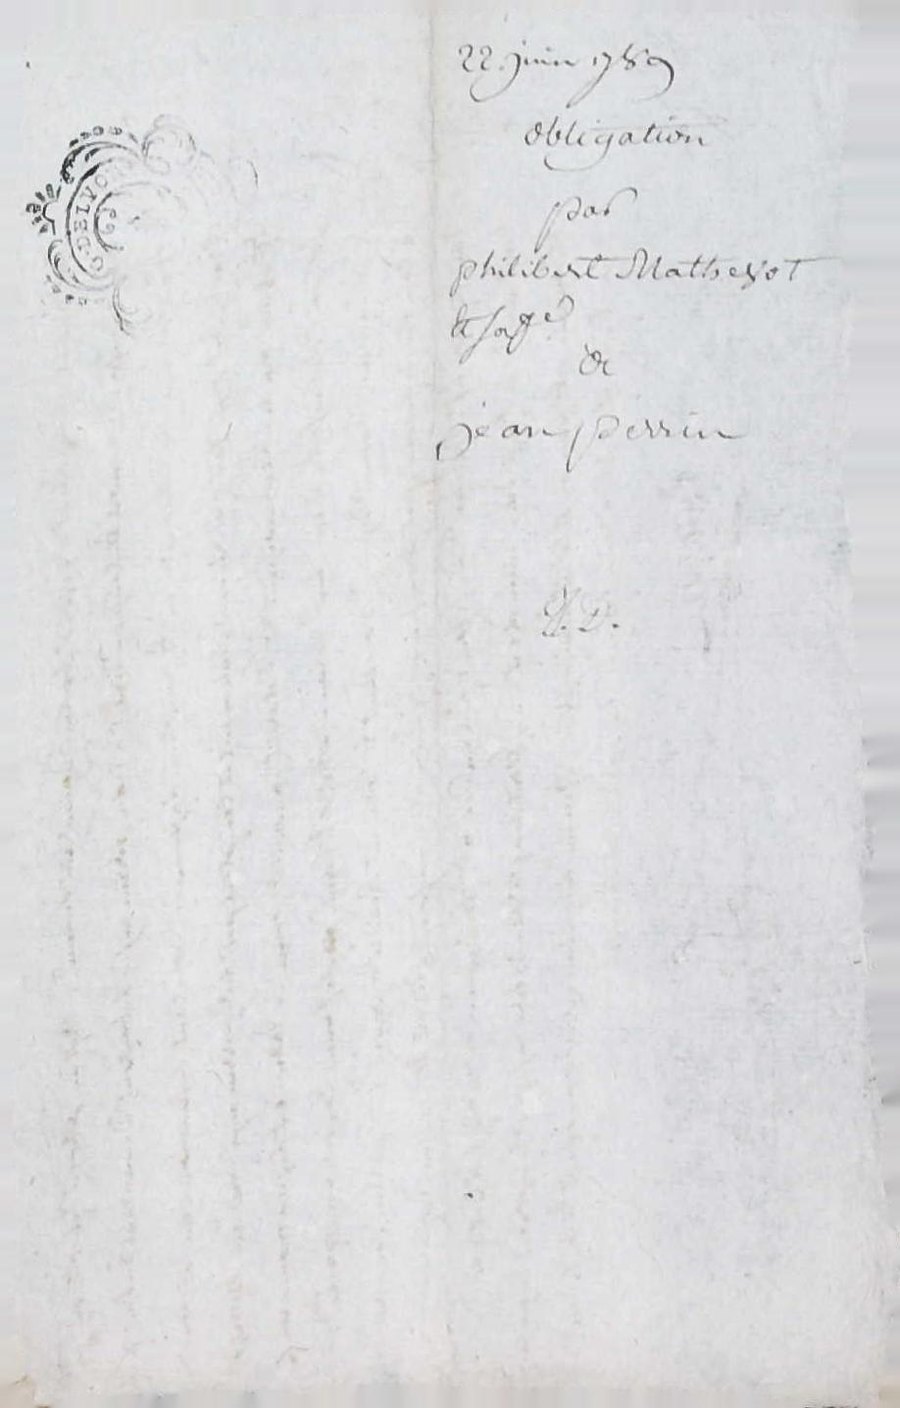 22 juin 1789
obligation
par
philibert Matheyot
& sa fe
&
jean perrin